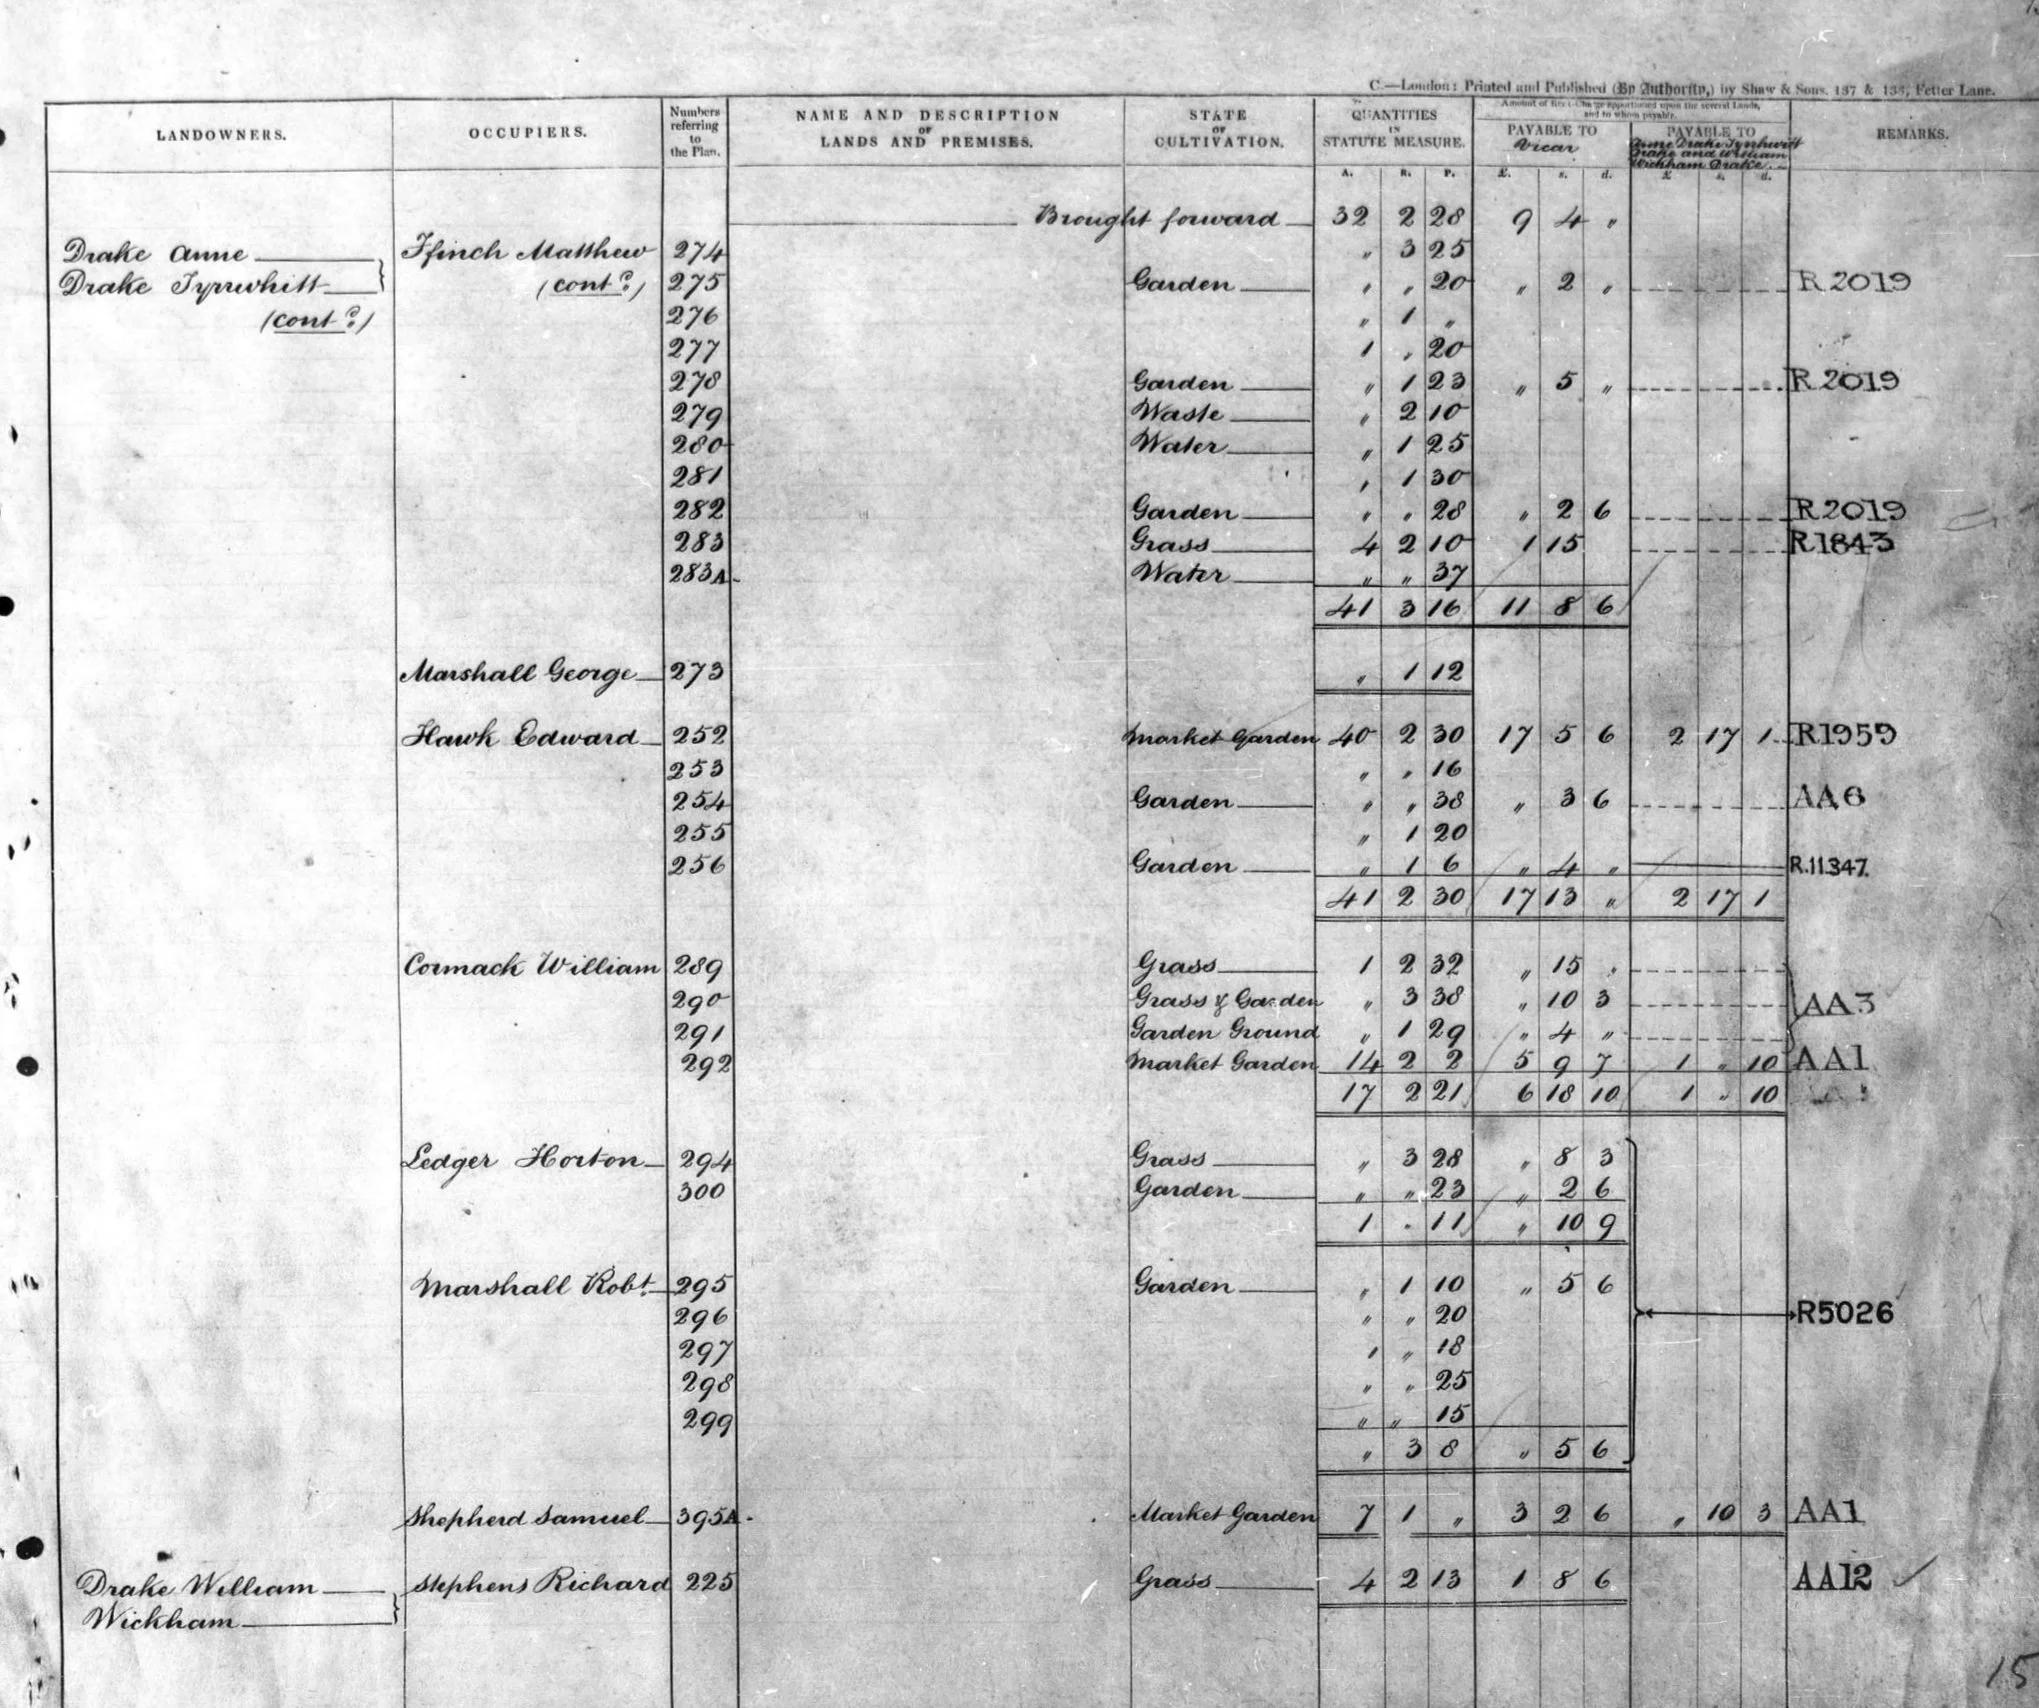 C.—London: Printed and Published (By Authority,) by Shaw & Sons, 137 & 138, Fetter Lane.
LANDOWNERS. OCCUPIERS. Numbers referring to the Plan. NAME AND DESCRIPTION OF LANDS AND PREMISES. STATE OF CULTIVATION. QUANTITIES IN STATUTE MEASURE. Amount of Rent-Charge apportioned upon the several Lands, and to whom payable. REMARKS.
PAYABLE TO Vicar PAYABLE TO Anne Drake Tyrwhitt Drake and William Wickham Drake
A. R. P. £. s. d. £ s. d.
Brought forward 32 2 28 9 4 "
Drake Anne Ffinch Matthew 274 " 3 25
Drake Tyrwhitt (contd.) 275 Garden " " 20 " 2 " R 2019
(contd.) 276 " 1 "
277 1 " 20
278 Garden " 1 23 " 5 " R 2019
279 Waste " 2 10
280 Water " 1 25
281 " 1 30
282 Garden " " 28 " 2 6 R 2019
283 Grass 4 2 10 1 15 R 1843
283A. Water " " 37
41 3 16 11 8 6
Marshall George 273 " 1 12
Hawk Edward 252 Market Garden 40 2 30 17 5 6 2 17 1 R1959
253 " " 16
254 Garden " " 38 " 3 6 AA6
255 " 1 20
256 Garden " 1 6 " 4 " R.11347.
41 2 30 17 13 " 2 17 1
Cormack William 289 Grass 1 2 32 " 15 "
290 Grass & Garden " 3 38 " 10 3 AA3
291 Garden Ground " 1 29 " 4 "
292 Market Garden 14 2 2 5 9 7 1 " 10 AA1
17 2 21 6 18 10 1 " 10
Ledger Horton 294 Grass " 3 28 " 8 3
300 Garden " " 23 " 2 6
1 " 11 " 10 9
Marshall Robt. 295 Garden " 1 10 " 5 6
296 " " 20 R5026
297 " " 18
298 " " 25
299 " " 15
" 3 8 " 5 6
Shepherd Samuel 395A. Market Garden 7 1 " 3 2 6 " 10 3 AA1
Drake William Stephens Richard 225 Grass 4 2 13 1 8 6 AA12
Wickham
15